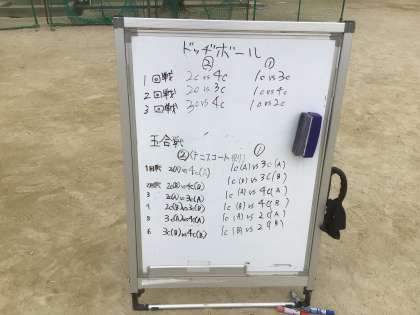 ドッヂボール
② ①
1回戦 2c vs 4c 1c vs 3c
2回戦 2c vs 3c 1c vs 4c
3回戦 3c vs 4c 1c vs 2c
玉合戦
②(テニスコート側) ①
1回戦 2(A) vs 4c(A) 1c(A) vs 3c(A)
2回戦 2c(B) vs 4c(B) 1c(B) vs 3c(B)
3 2c(A) vs 3c(A) 1c(A) vs 4c(A)
4 2c(B) vs 3c(B) 1c(B) vs 4c(B)
5 3c(A) vs 4c(A) 1c(A) vs 2c(A)
6 3c(B) vs 4c(B) 1c(B) vs 2c(B)